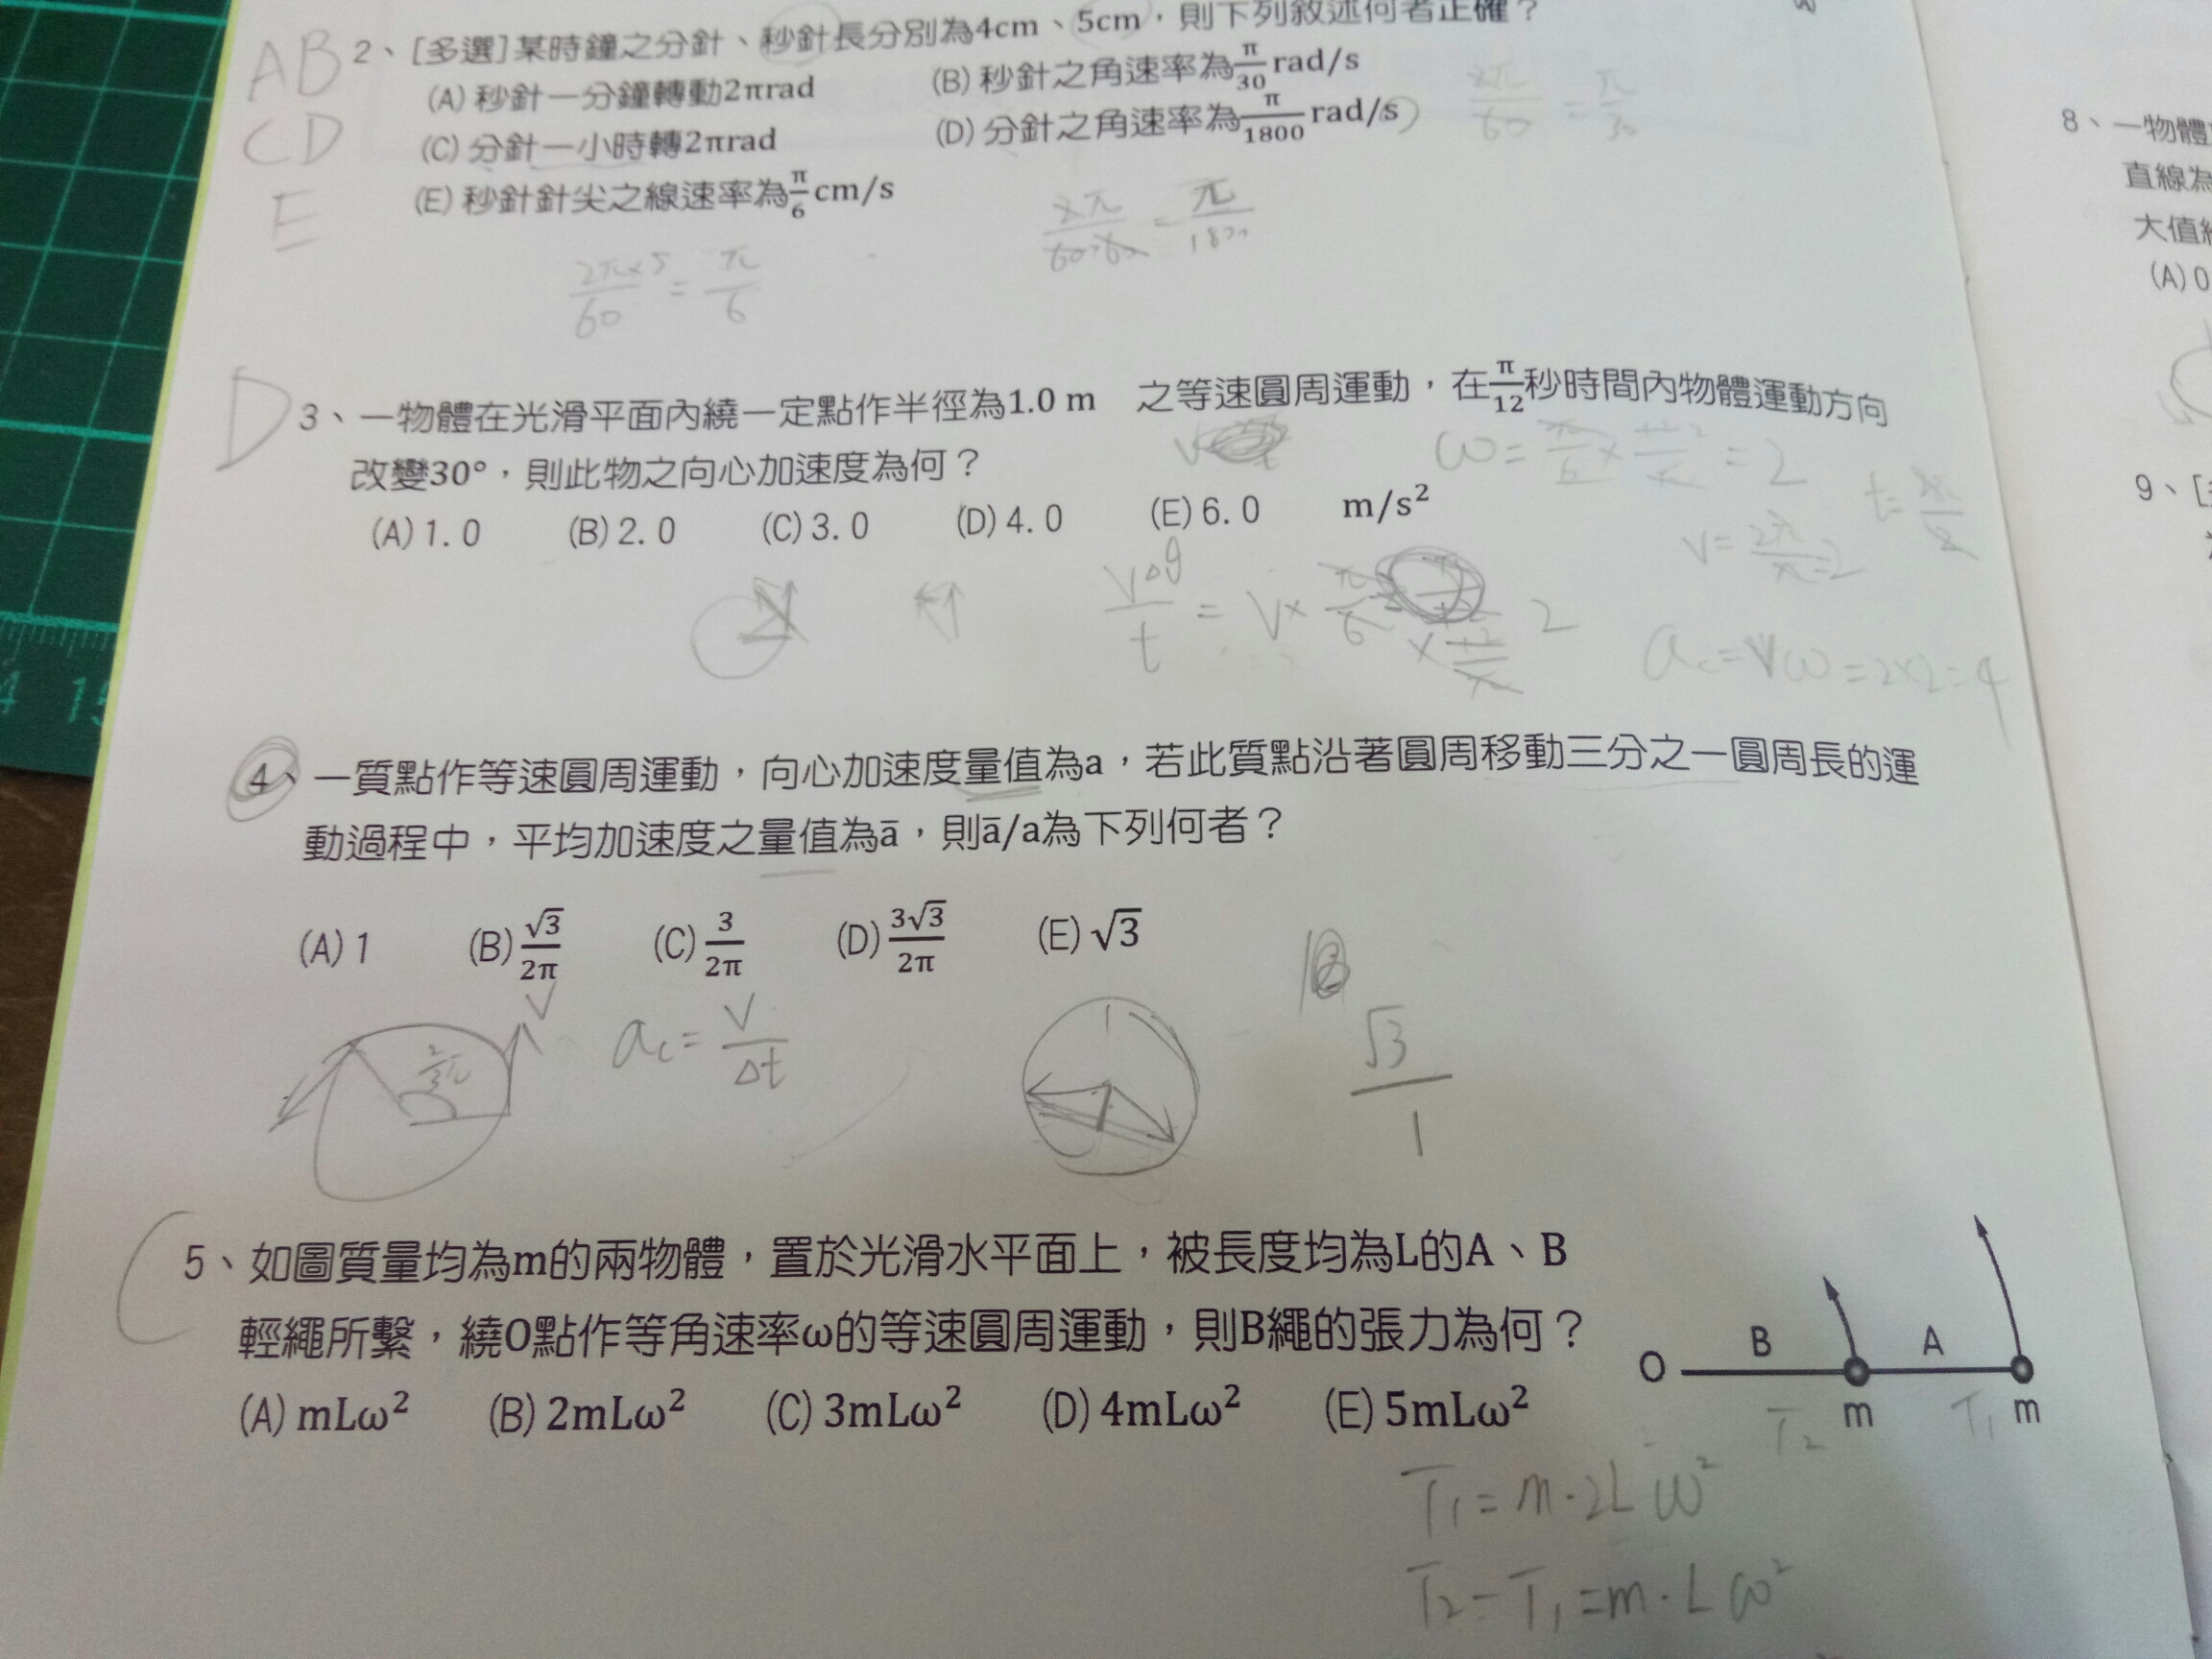 2、[多選]某時鐘之分針、秒針長分別為4cm、5cm，則下列敘述何者正確？
AB
(A) 秒針一分鐘轉動2πrad (B) 秒針之角速率為π/30 rad/s
2π/60 = π/30
CD
(C) 分針一小時轉2πrad (D) 分針之角速率為π/1800 rad/s
E
(E) 秒針針尖之線速率為π/6 cm/s
2π×5/60 = π/6
D
3、一物體在光滑平面內繞一定點作半徑為1.0 m 之等速圓周運動，在π/12秒時間內物體運動方向
改變30°，則此物之向心加速度為何？
ω = π/6 × 12/π = 2
(A) 1.0 (B) 2.0 (C) 3.0 (D) 4.0 (E) 6.0 m/s²
v = 2π/π = 2
ac = vω = 2×2 = 4
4、一質點作等速圓周運動，向心加速度量值為a，若此質點沿著圓周移動三分之一圓周長的運
動過程中，平均加速度之量值為ā，則ā/a為下列何者？
(A) 1 (B) √3/2π (C) 3/2π (D) 3√3/2π (E) √3
V
ac = V/Δt
2/3π
√3/1
C
5、如圖質量均為m的兩物體，置於光滑水平面上，被長度均為L的A、B
輕繩所繫，繞O點作等角速率ω的等速圓周運動，則B繩的張力為何？
(A) mLω² (B) 2mLω² (C) 3mLω² (D) 4mLω² (E) 5mLω²
O B A
m m
T₂ T₁
T₁ = m·2Lω²
T₂ - T₁ = m·Lω²
8、一物體
直線為
大值
(A) 0
9、[